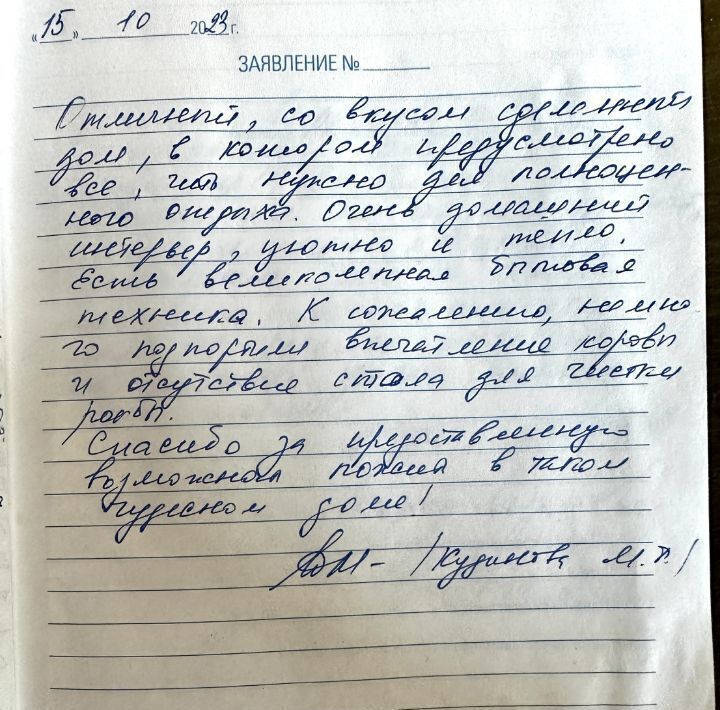 «15» 10 2023г.
ЗАЯВЛЕНИЕ №
Отличный, со вкусом сделанный
дом, в котором предусмотрено
все, что нужно для полноцен-
ного отдыха. Очень домашний
интерьер, уютно и тепло.
Есть великолепная бытовая
техника. К сожалению, немно
го подпортили впечатление коровы
и отсутствие стола для чистки
рыбы.
Спасибо за предоставленную
возможность пожить в таком
чудесном доме!
/Кудинова М. /